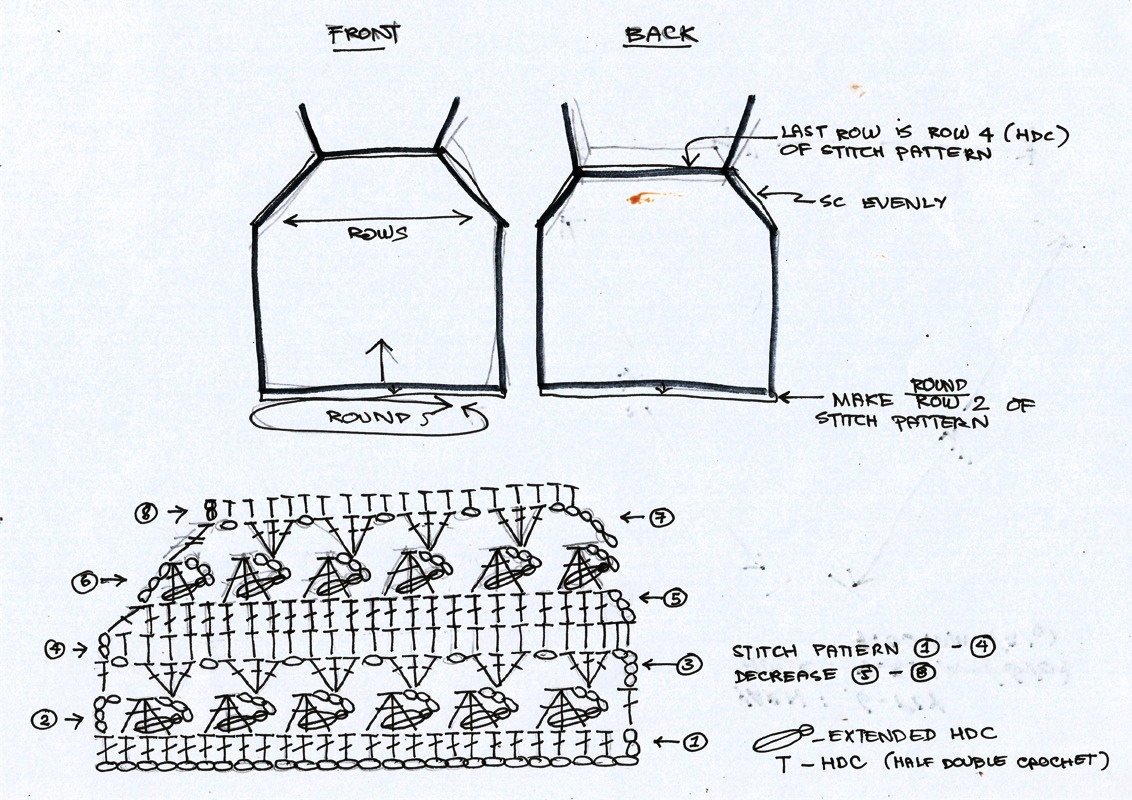 FRONT
BACK
LAST ROW IS ROW 4 (HDC)
OF STITCH PATTERN
SC EVENLY
ROWS
ROUNDS
MAKE ROUND/ROW 2 OF
STITCH PATTERN
8
7
6
5
4
3
2
1
STITCH PATTERN 1 - 4
DECREASE 5 - 8
- EXTENDED HDC
T - HDC (HALF DOUBLE CROCHET)